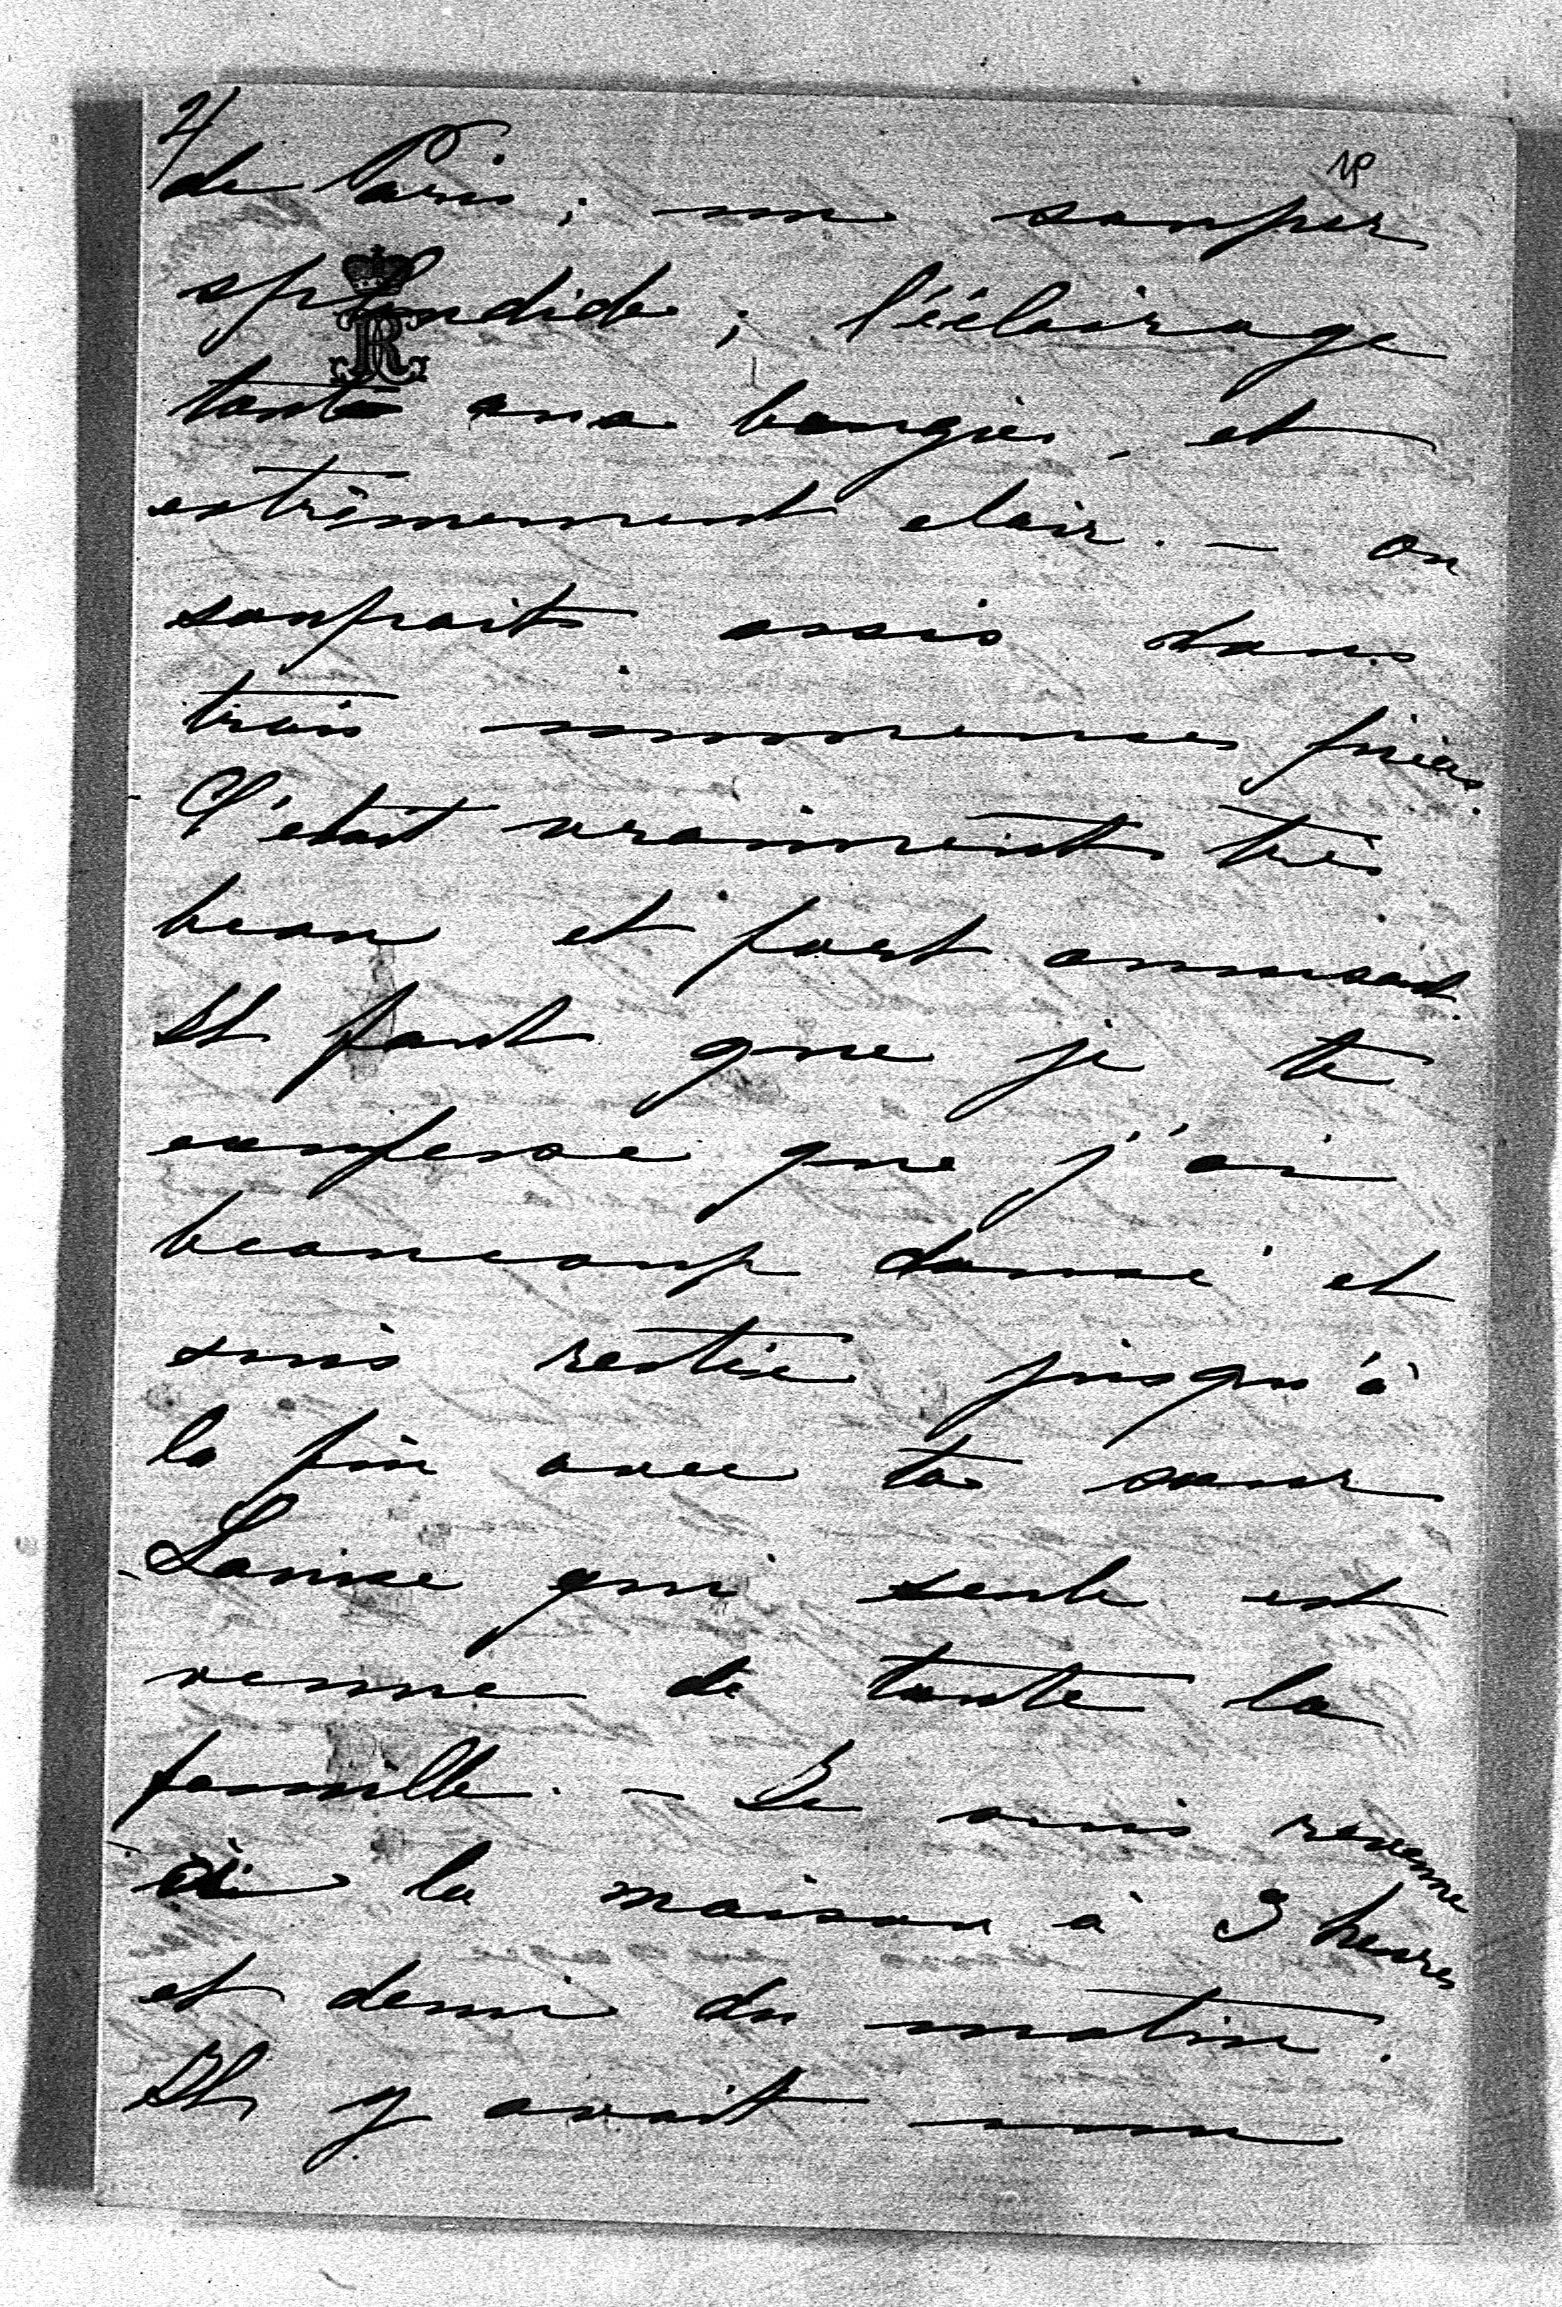 4/
de Paris ; un souper
splendide ; l'éclairage
tout aux bougies, et
extrèmement clair. — On
soupait assis dans
trois immenses pièces.
C'était vraiment très
beau et fort amusant.
Il faut que je te
confesse que j'ai
beaucoup dansé et
suis restée jusqu'à
la fin avec ta sœur
Louise qui seule est
venue de toute la
famille. — Je suis revenue
à la maison à 3 heures
et demi du matin.
Il y avait un